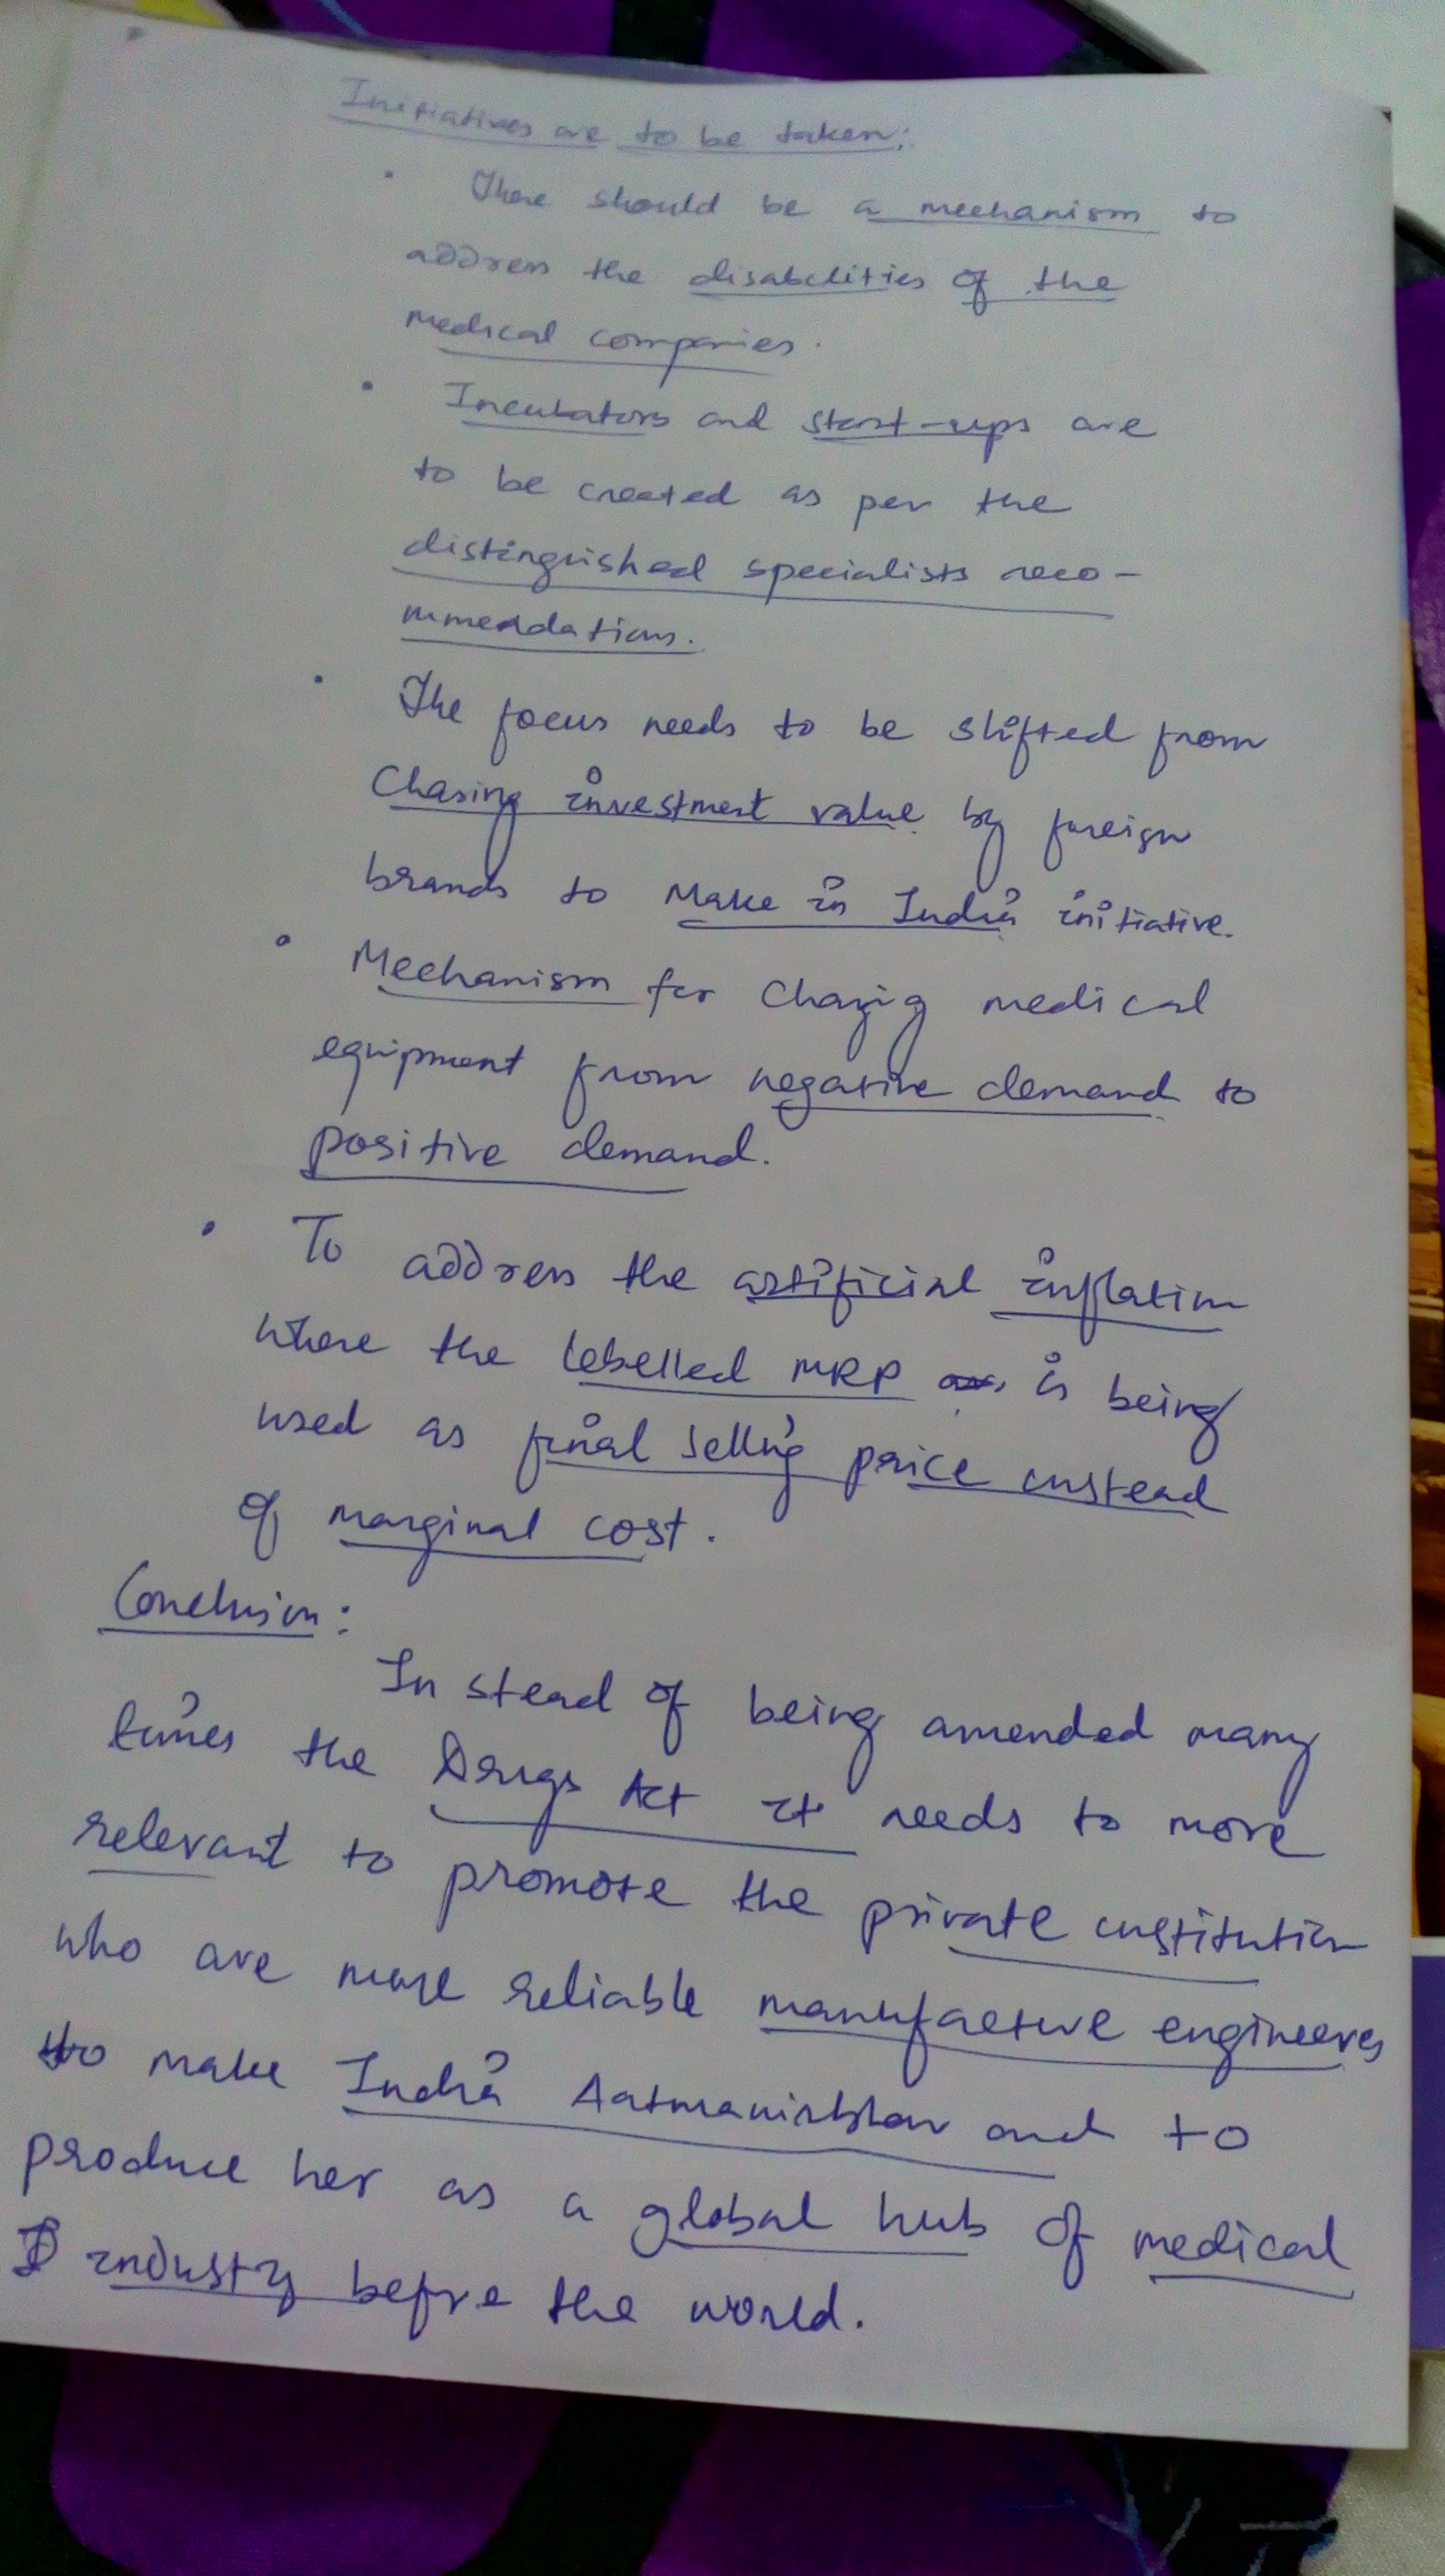 Initiatives are to be taken:
• There should be a mechanism to
address the disabilities of the
medical companies.
• Incubators and start-ups are
to be created as per the
distinguished specialists reco-
mmendations.
• The focus needs to be shifted from
Chasing investment value by foreign
brands to Make in India initiative.
• Mechanism for Chazig medical
equipment from negative demand to
positive demand.
• To address the artificial inflation
where the lebelled MRP is being
used as final selling price instead
of marginal cost.
Conclusion:
In stead of being amended many
times the Drugs Act it needs to more
relevant to promote the private institution
who are more reliable manufacture engineers
to make India Aatmanirbhar and to
produce her as a global hub of medical
industry before the world.